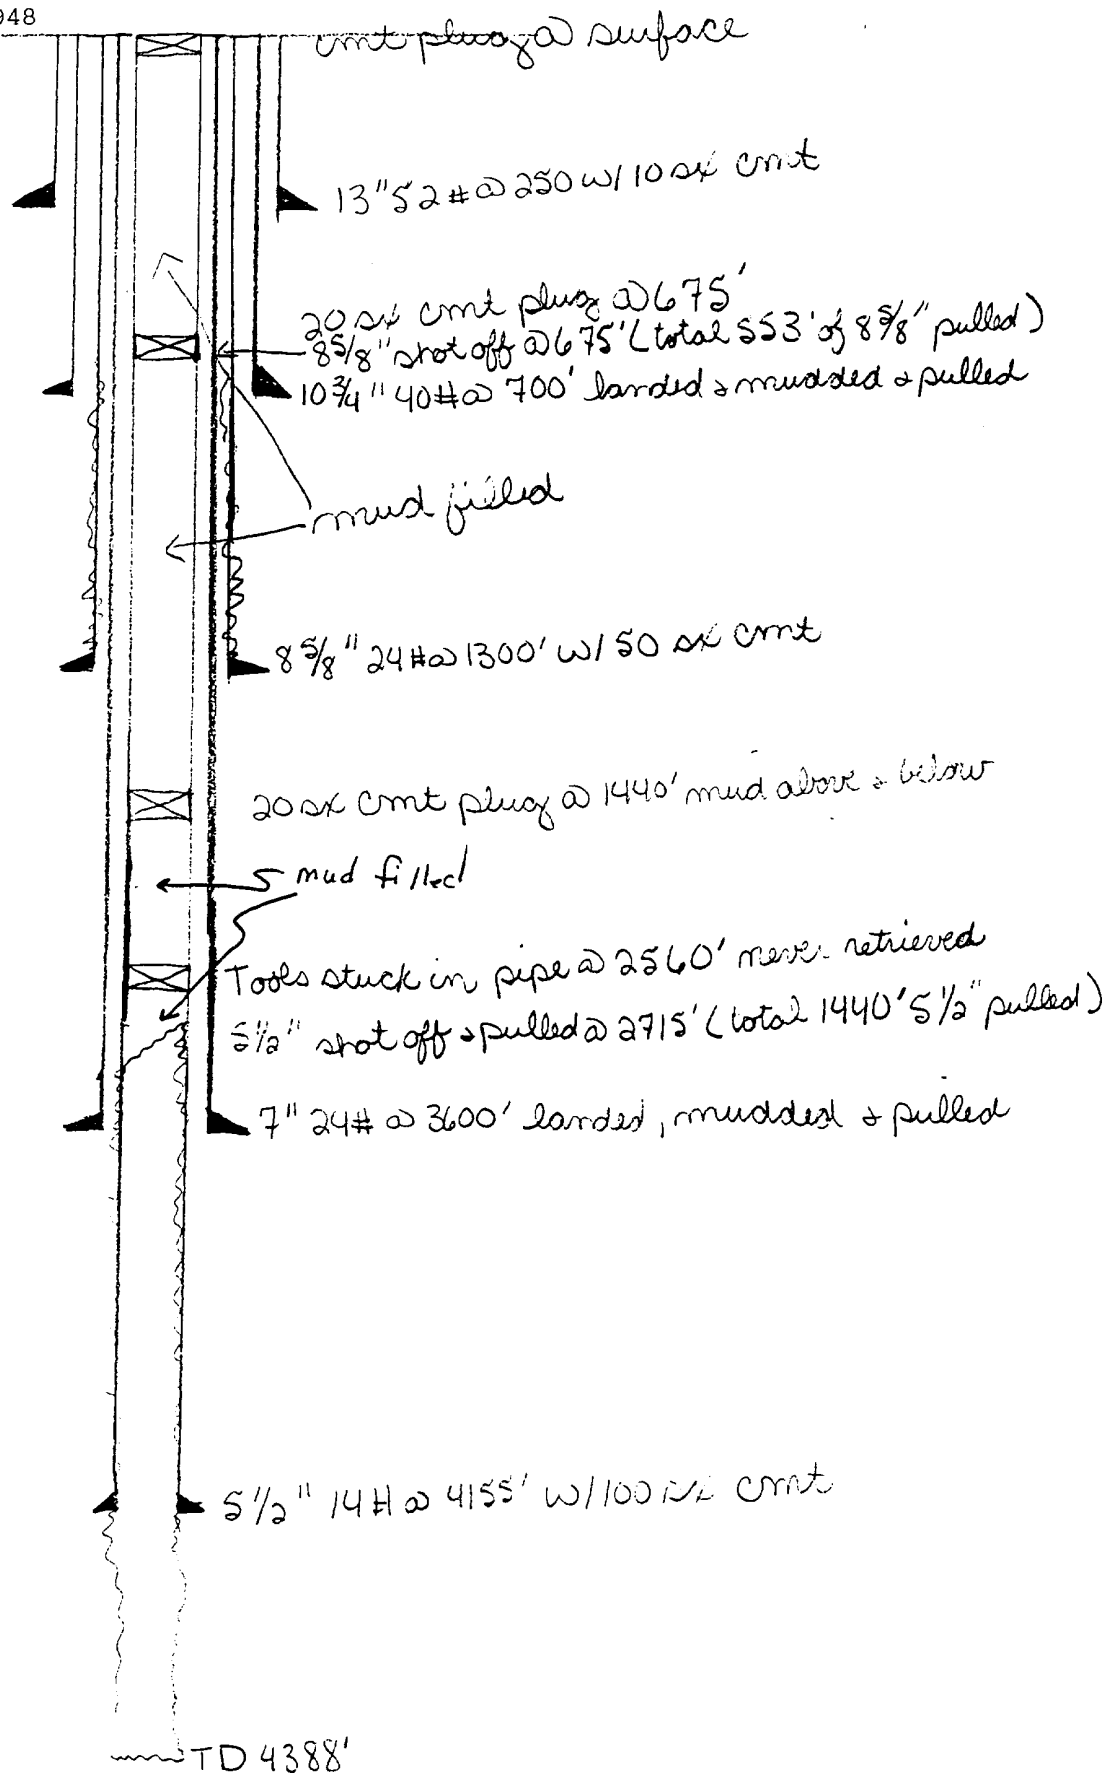 948
cmt plug @ surface
13" 52# @ 250 w/ 10 sx cmt
20 sx cmt plug @ 675'
8 5/8" shot off @ 675' (total 553' of 8 5/8" pulled)
10 3/4" 40# @ 700' landed & mudded & pulled
mud filled
8 5/8" 24# @ 1300' w/ 50 sx cmt
20 sx cmt plug @ 1440' mud above & below
mud filled
Tools stuck in pipe @ 2560' never retrieved
5 1/2" shot off & pulled @ 2715' (total 1440' 5 1/2" pulled)
7" 24# @ 3600' landed, mudded & pulled
5 1/2" 14# @ 4155' w/ 100 sx cmt
TD 4388'